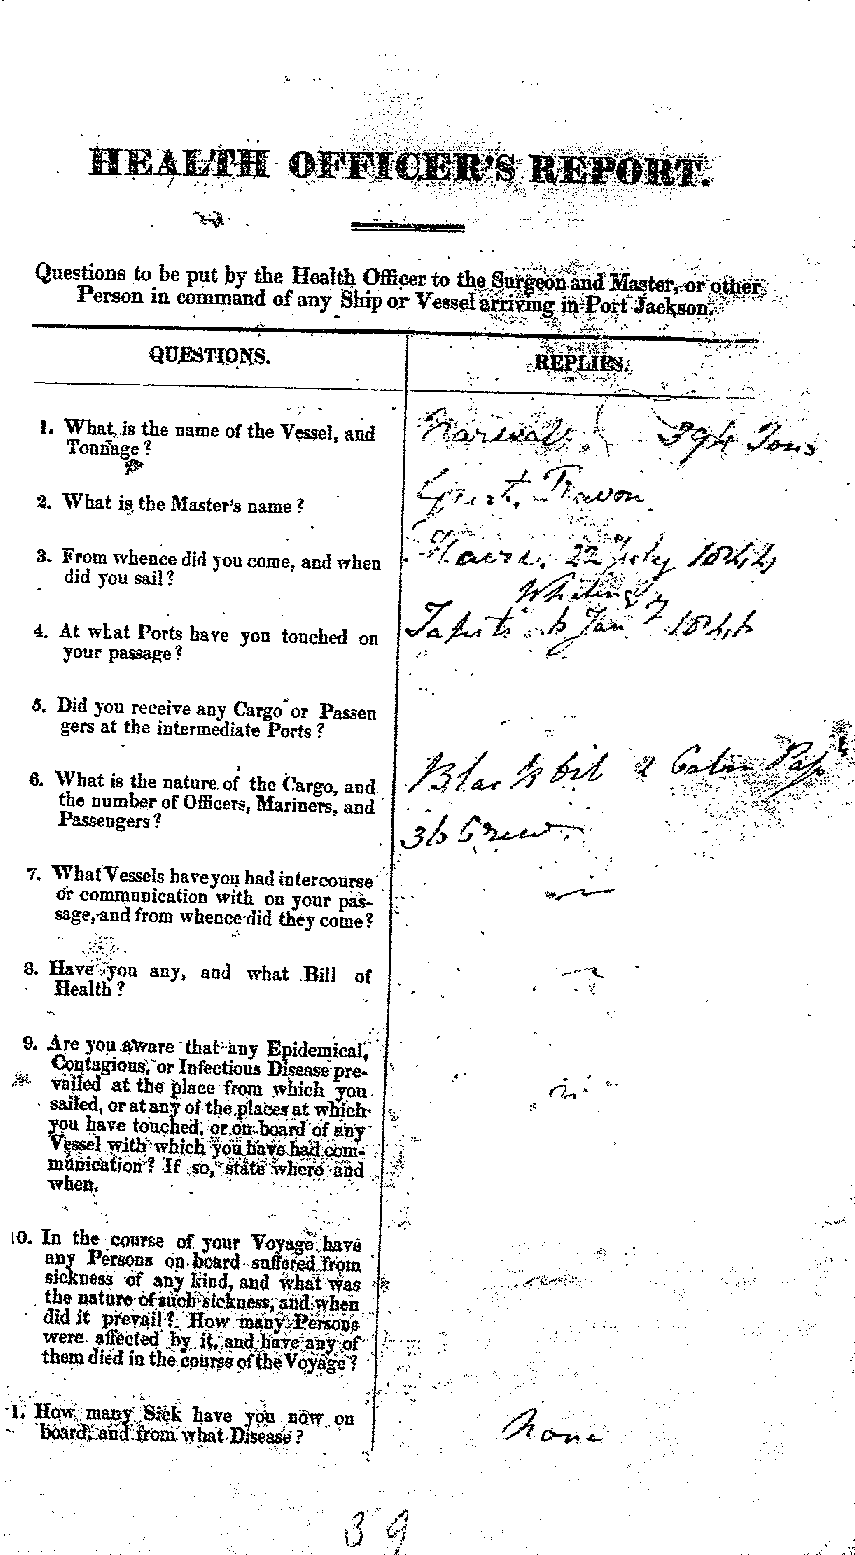 HEALTH OFFICER'S REPORT.
Questions to be put by the Health Officer to the Surgeon and Master, or other
Person in command of any Ship or Vessel arriving in Port Jackson.
QUESTIONS.
REPLIES.
1. What is the name of the Vessel, and
Tonnage?
Narwal 394 Tons
2. What is the Master's name?
3. From whence did you come, and when
did you sail?
Havre. 22 July 1844
Whaling
4. At what Ports have you touched on
your passage?
Tahiti 6 Jany 1846
5. Did you receive any Cargo or Passen
gers at the intermediate Ports?
6. What is the nature of the Cargo, and
the number of Officers, Mariners, and
Passengers?
Black Oil 2 Cabin Pass
36 Crew.
7. What Vessels have you had intercourse
or communication with on your pas-
sage, and from whence did they come?
8. Have you any, and what Bill of
Health?
9. Are you aware that any Epidemical,
Contagious, or Infectious Disease pre-
vailed at the place from which you
sailed, or at any of the places at which
you have touched, or on board of any
Vessel with which you have had com-
munication? If so, state where and
when.
10. In the course of your Voyage have
any Persons on board suffered from
sickness of any kind, and what was
the nature of such sickness, and when
did it prevail? How many Persons
were affected by it, and have any of
them died in the course of the Voyage?
1. How many Sick have you now on
board, and from what Disease?
None
39